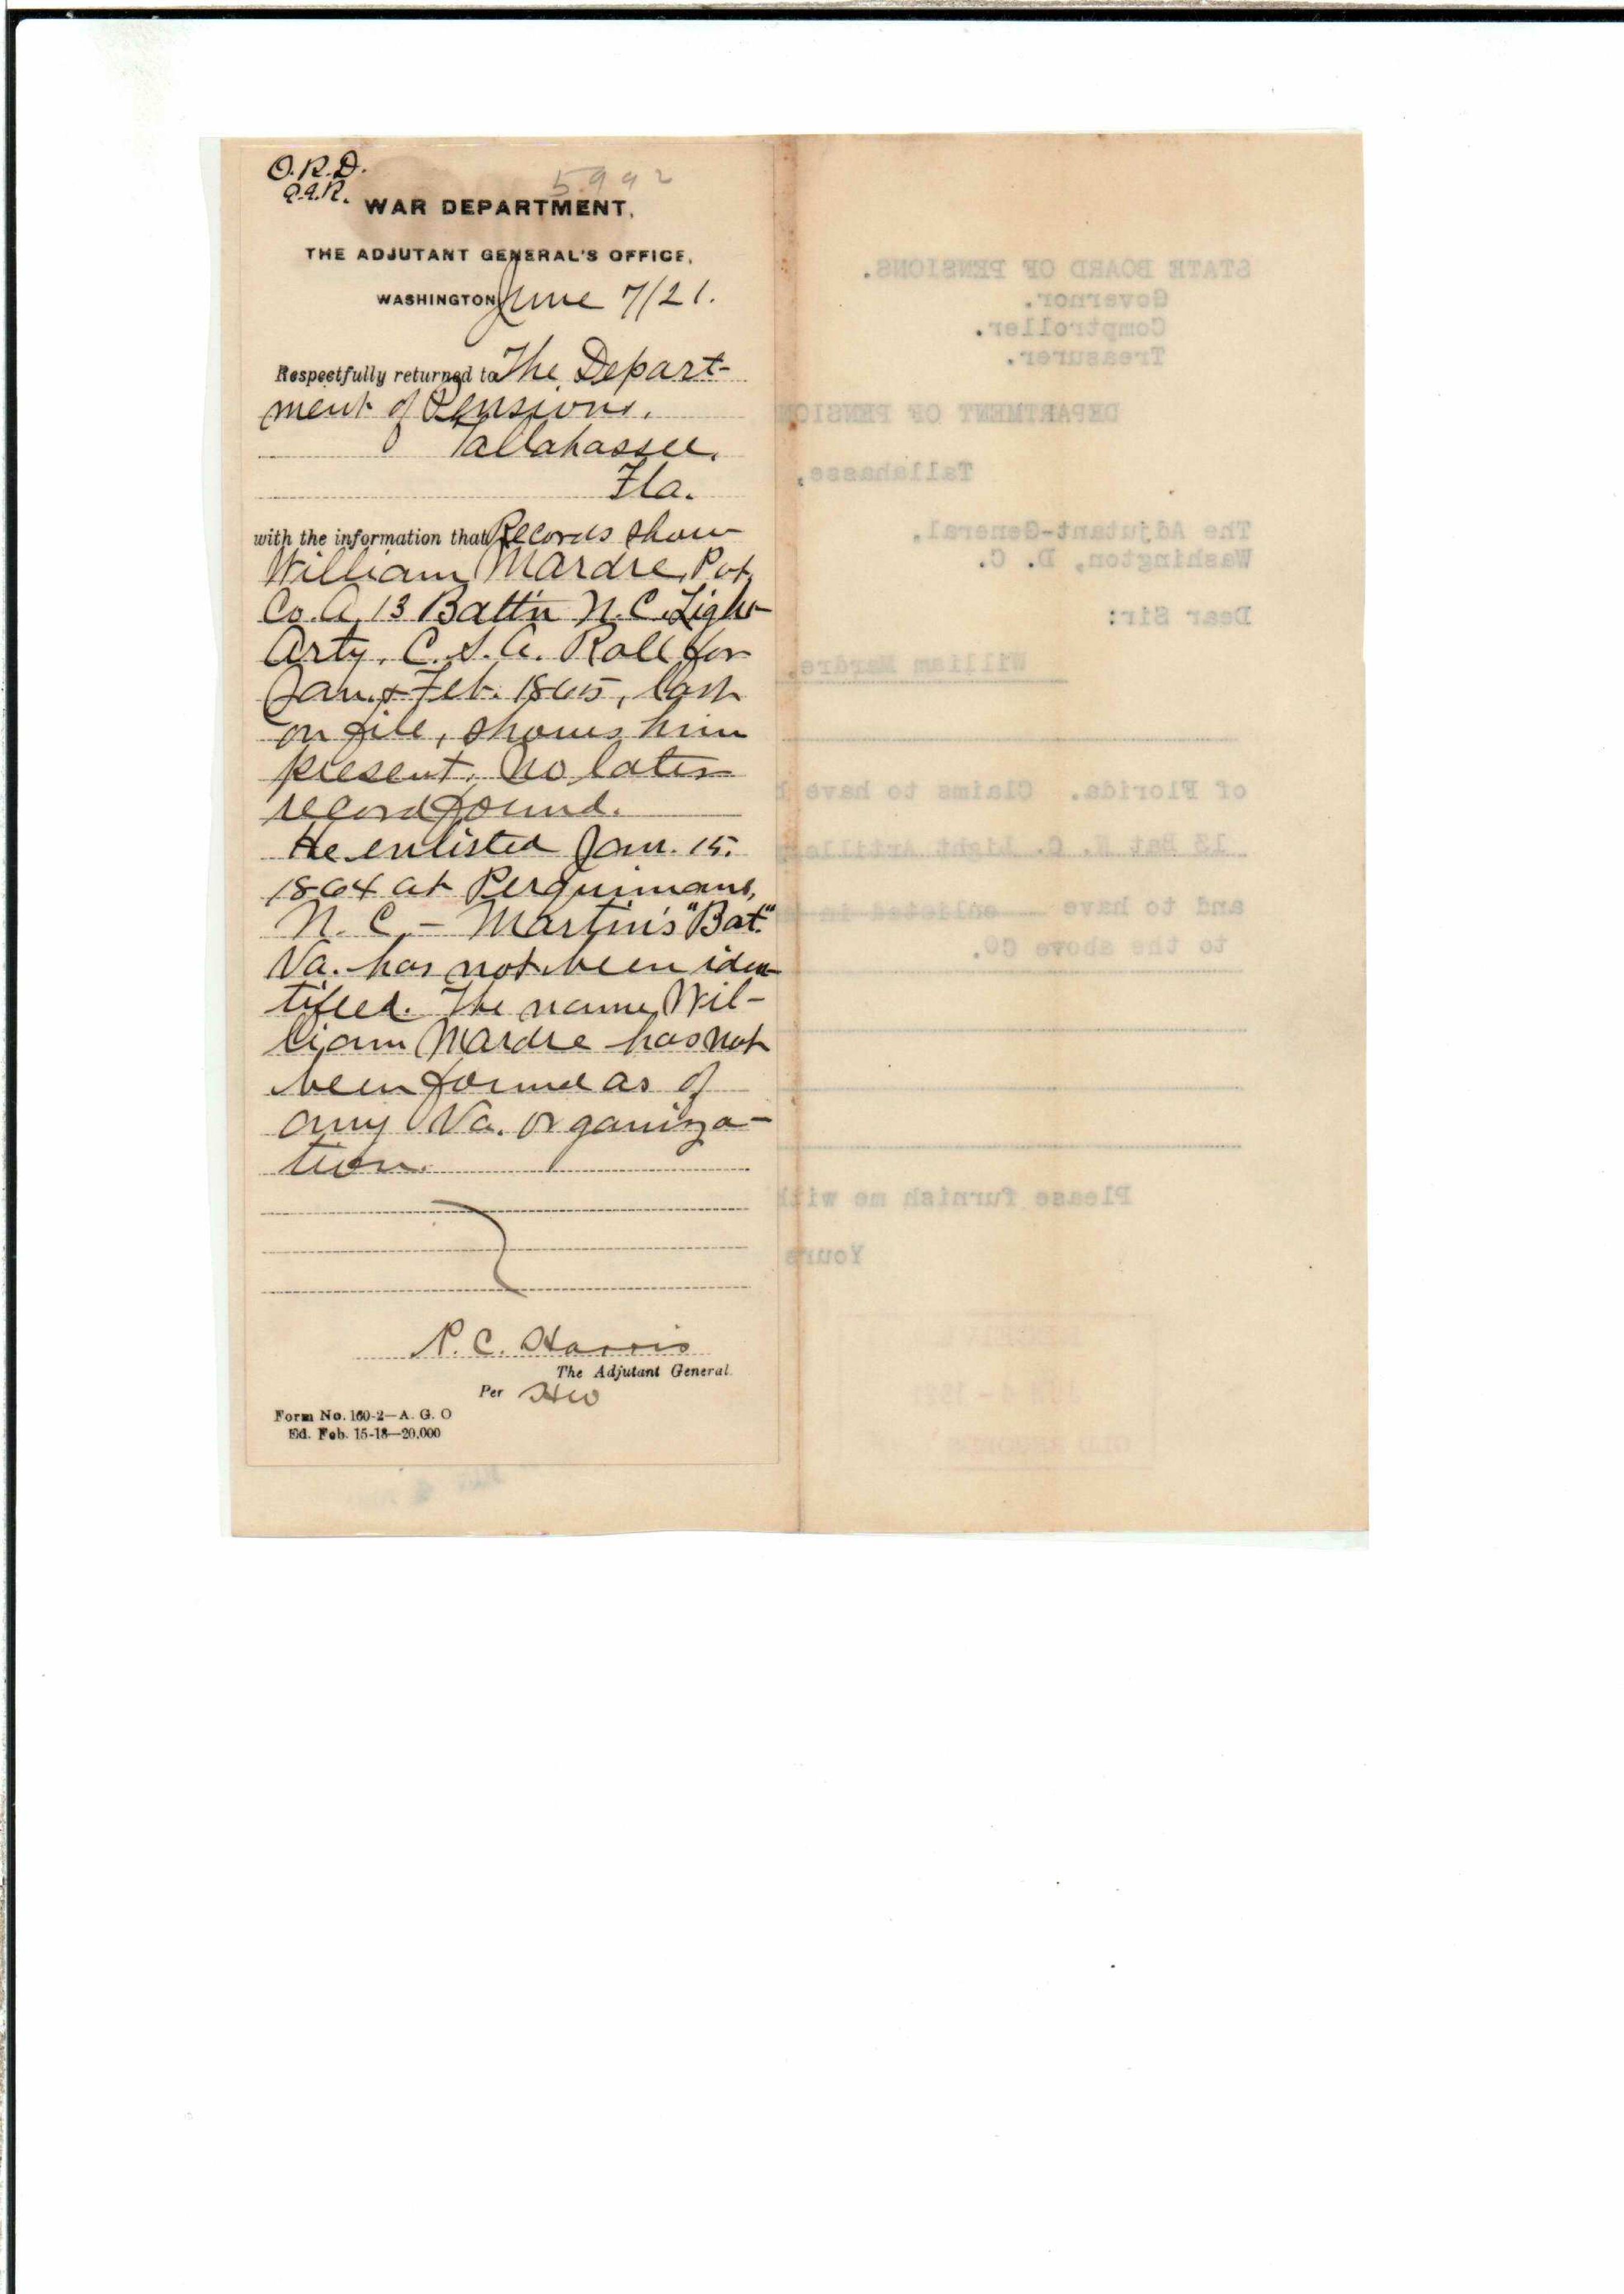 O.R.D.
5992
WAR DEPARTMENT,
THE ADJUTANT GENERAL'S OFFICE,
WASHINGTON June 7/21.
Respectfully returned to The Depart-
ment of Pensions.
Tallahassee.
Fla.
with the information that Records show
William Mardre, Pvt.
Co. A, 13 Batt'n N.C. Light
Arty. C.S.A. Roll for
Jan. & Feb. 1865, last
on file, shows him
present. No later
record found.
He enlisted Jan. 15.
1864 at Perquimans,
N.C. - Martin's "Bat."
Va. has not been iden
tified. The name Wil-
liam Mardre has not
been found as of
any Va. organiza-
tion.
P. C. Harris
The Adjutant General.
Per
Form No. 160-2—A. G. O
Ed. Feb. 15-18—20,000
STATE BOARD OF PENSIONS.
Governor.
Comptroller.
Treasurer.
DEPARTMENT OF PENSION
Tallahasse,
The Adjutant-General,
Washington, D. C.
Dear Sir:
William Mardre.
of Florida. Claims to have
13 Bat N. C. Light Artille
and to have enlisted in
to the above CO.
Please furnish me with
Yours